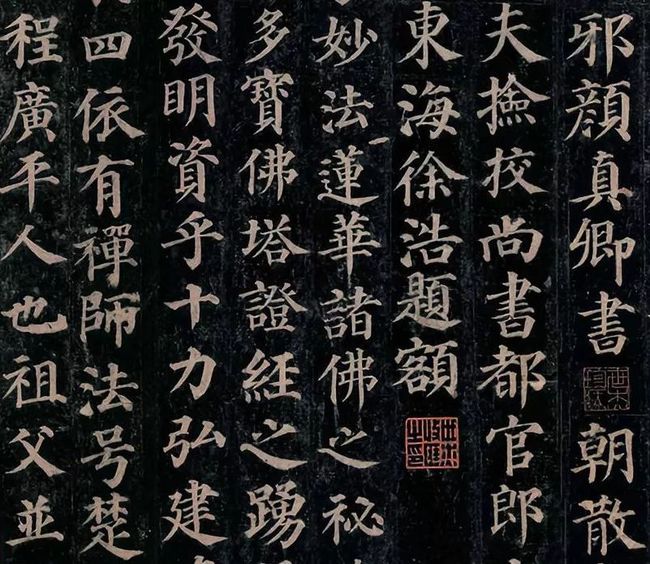 邪顏真卿書朝散
夫撿挍尚書都官郎
東海徐浩題額
妙法蓮華諸佛之秘
多寶佛塔證經之踴
發明資乎十力弘建
四依有禪師法号楚
程廣平人也祖父並